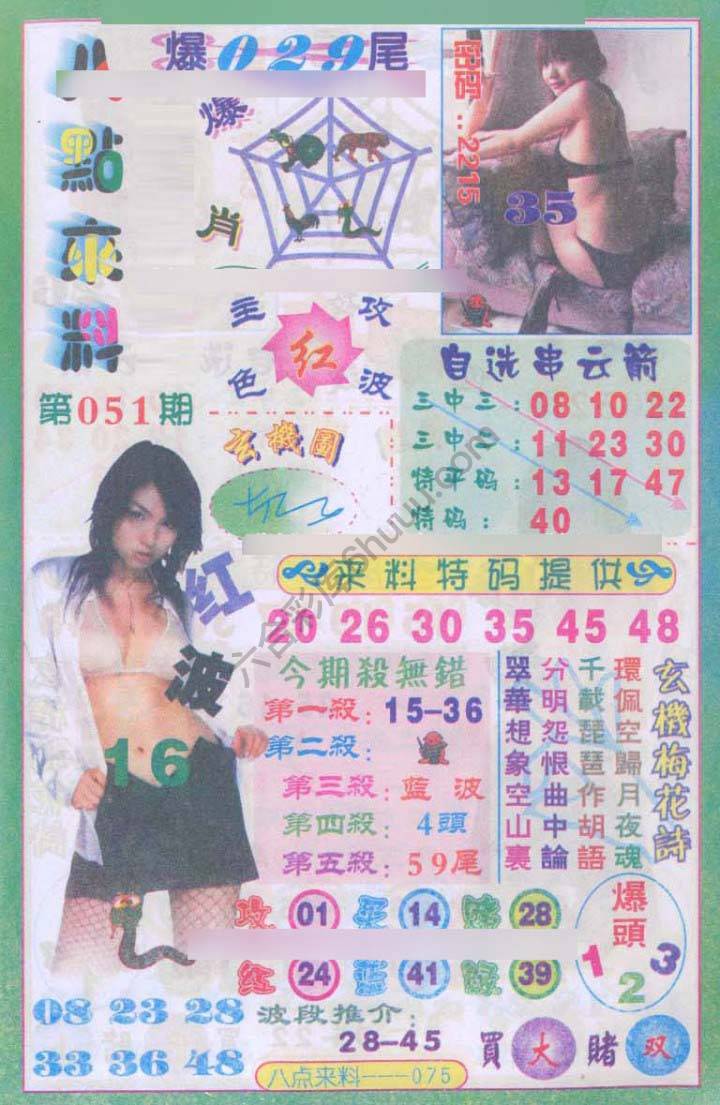 八點來料
爆029尾
爆肖
主攻色波
红
第051期
玄機圖
密语...2215
35
自选串云箭
三中三:08 10 22
三中二:11 23 30
特平码:13 17 47
特码:40
来料特码提供
20 26 30 35 45 48
红波
16
今期殺無錯
第一殺:15-36
第二殺:
第三殺:藍波
第四殺:4頭
第五殺:59尾
玄機梅花詩
環佩空歸月夜魂
千載琵琶作胡語
分明怨恨曲中論
翠華想象空山裏
攻 01 14 28
红 24 藍 41 綠 39
爆頭
1 2 3
08 23 28
33 36 48
波段推介:
28-45
買大賭双
八点来料---075
六合彩库6huuu.com